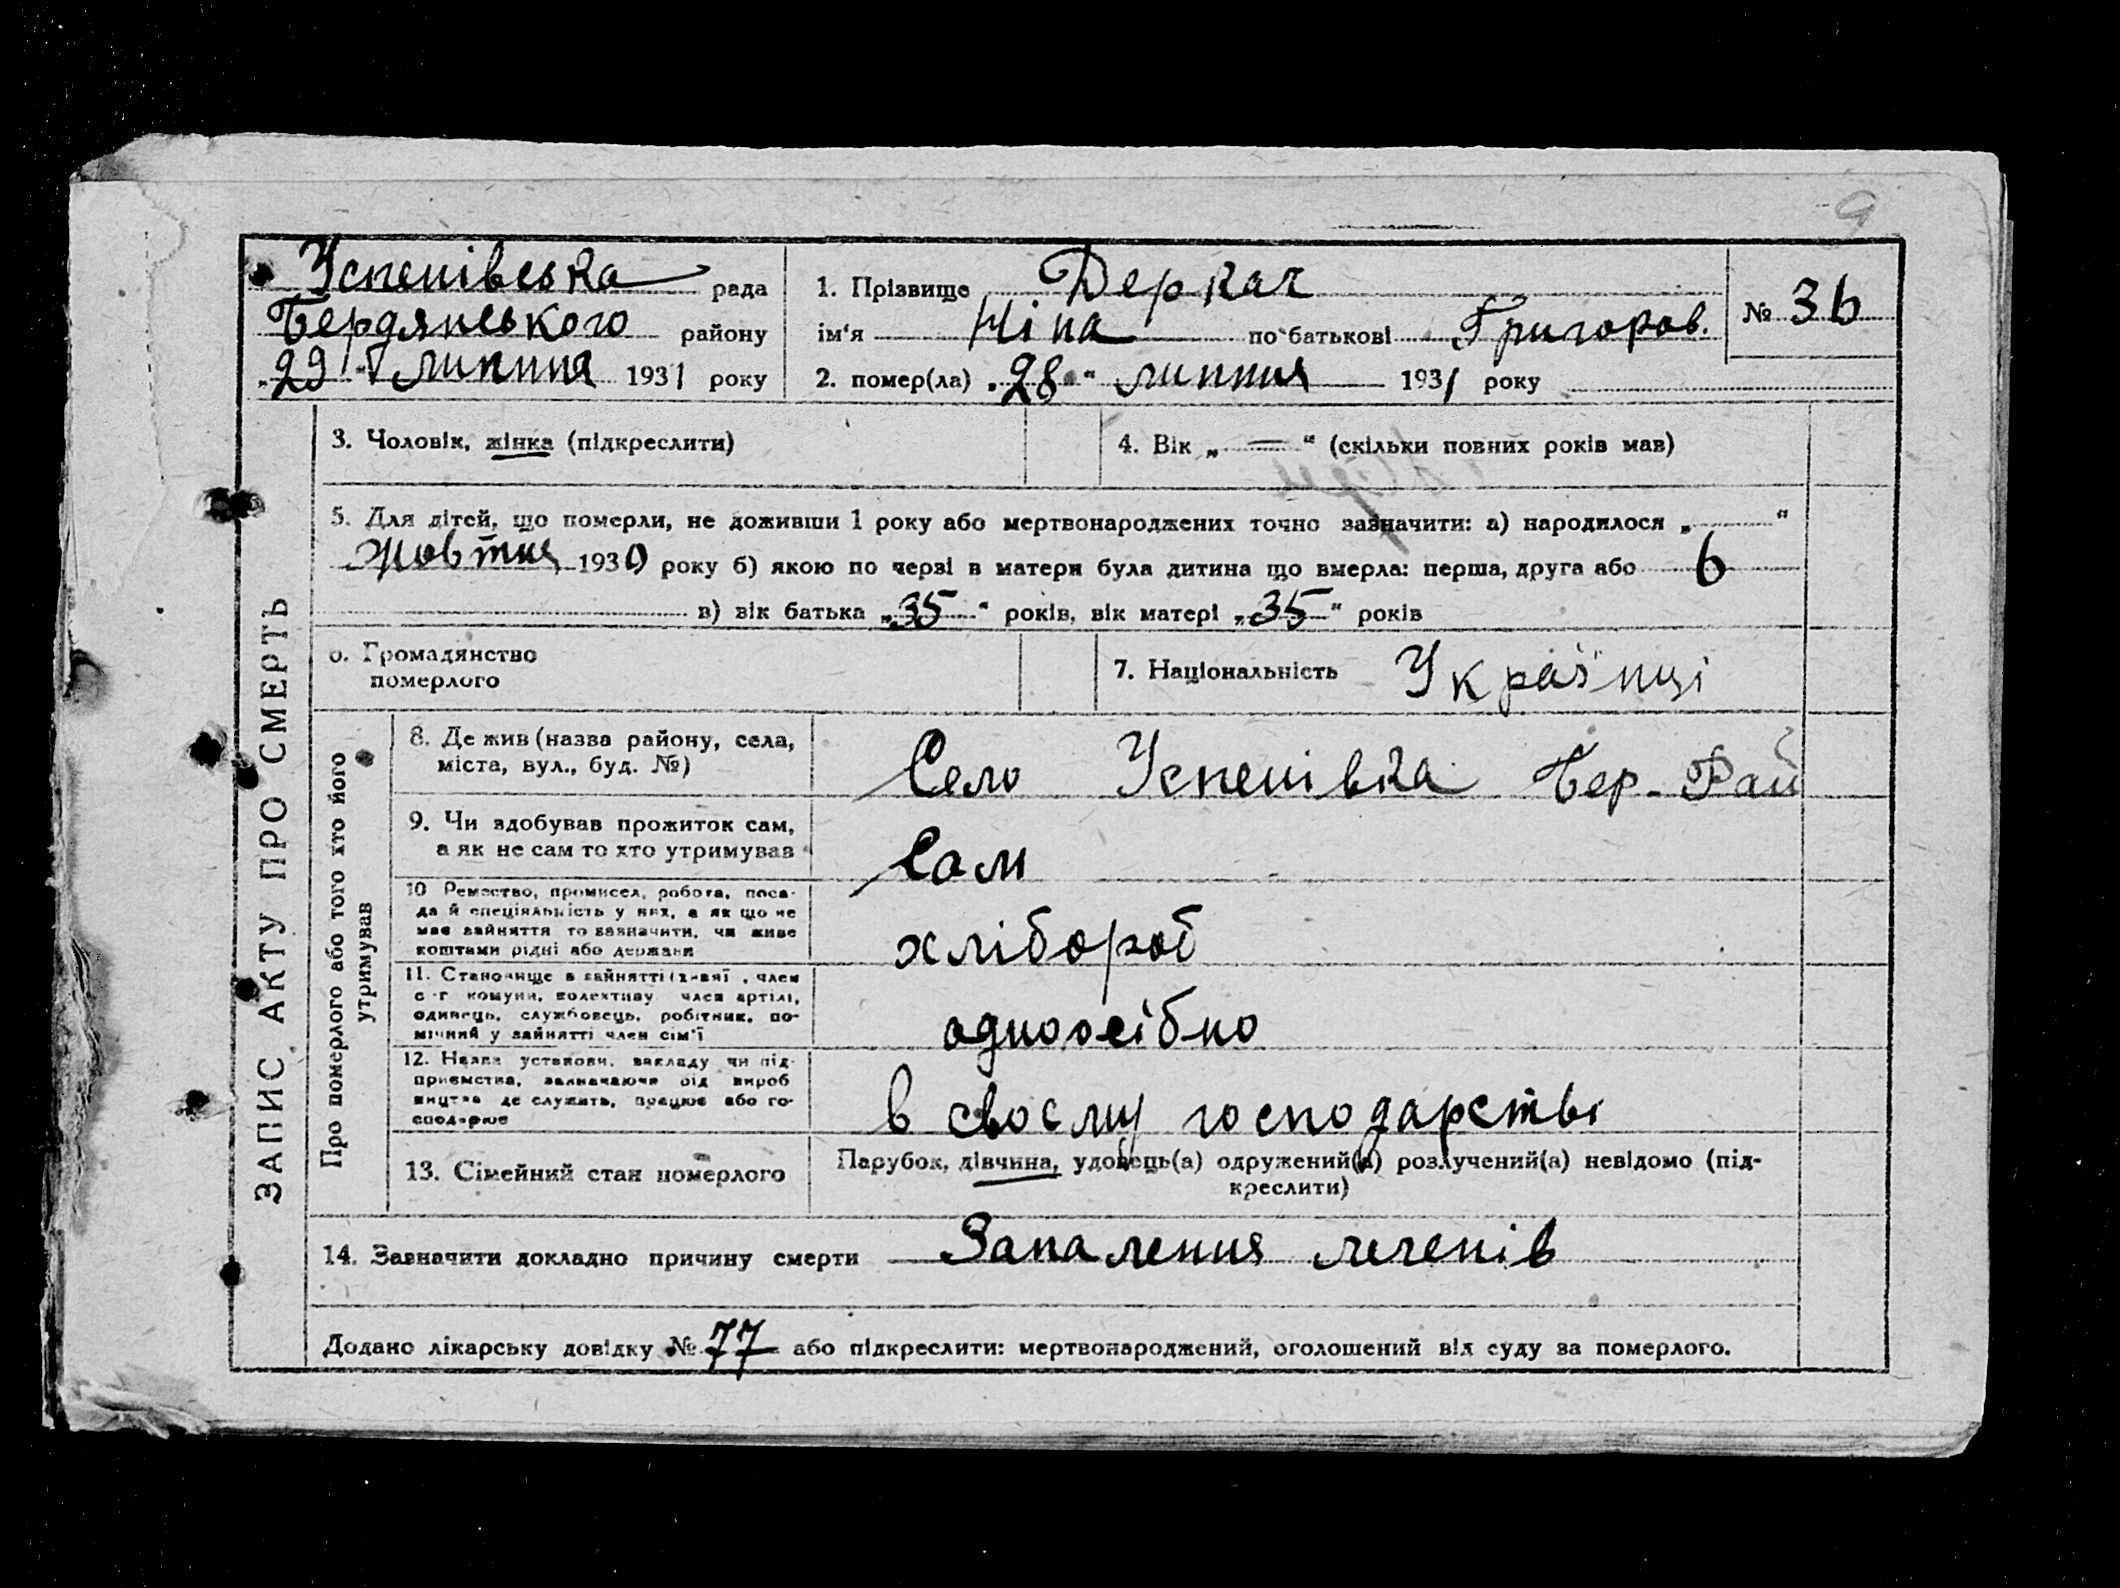 9
Успенівська рада
Бердянського району
„29“ липня 1931 року
1. Прізвище Деркач
ім‘я Ніна по батькові Григоров.
2. помер(ла) „28“ липня 1931 року
№ 36
ЗАПИС АКТУ ПРО СМЕРТЬ
3. Чоловік, жінка (підкреслити)
4. Вік „ = “ (скільки повних років мав)
5. Для дітей, що померли, не доживши 1 року або мертвонароджених точно зазначити: а) народилося „ “
жовтня 1930 року б) якою по черзі в матери була дитина що вмерла: перша, друга або 6
в) вік батька „35“ років, вік матері „35“ років
6. Громадянство
померлого
7. Національність Українці
Про померлого або того хто його
утримував
8. Де жив (назва району, села,
міста, вул., буд. №)
Село Успенівка Бер-Рай
9. Чи здобував прожиток сам,
а як не сам то хто утримував
Сам
10 Ремество, промисел, робота, поса-
да й спеціяльність у них, а як що не
має зайняття то зазначити, чи живе
коштами рідні або держави
хлібороб
11. Становище в зайнятті член
с-г комуни, колективу член артілі,
одинець, службовець, робітник, по-
мічний у зайнятті член сім'ї
одноосібно
12. Назва установи, закладу чи під-
приємства, зазначаючи від вироб
ництва де служить, працює або го-
сподарює
в своєму господарстві
13. Сімейний стан померлого
Парубок, дівчина, удовець(а) одружений(а) розлучений(а) невідомо (під-
креслити)
14. Зазначити докладно причину смерти Запалення легенів
Додано лікарську довідку № 77 або підкреслити: мертвонароджений, оголошений від суду за померлого.